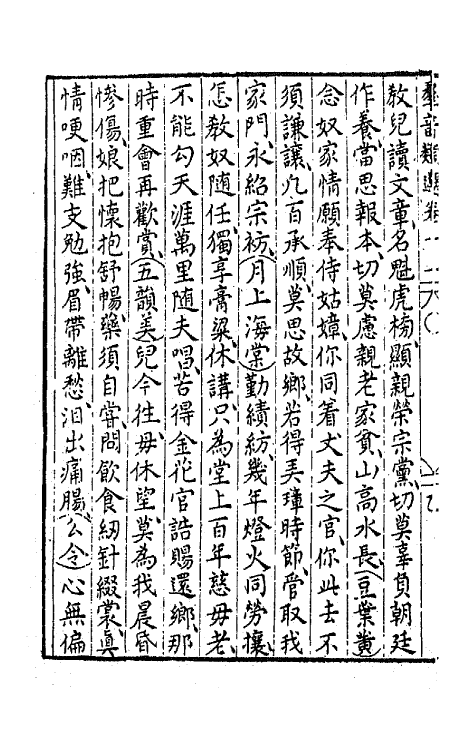 羣音類選卷
教兒讀文章名魁虎榜顯親榮宗黨切莫辜負朝廷
作養當思報本切莫慮親老家貧山高水長（豆葉黃）
念奴家情願奉侍姑嫜你同着丈夫之官你此去不
須謙讓凡百承順莫思故鄉若得弄璋時節管取我
家門永紹宗祊（月上海棠）勤績紡幾年燈火同勞攘
怎教奴隨任獨享膏粱休講只為堂上百年慈母老
不能勾天涯萬里隨夫唱若得金花官誥賜還鄉那
時重會再歡賞（五韻美）兒今往毋休望莫為我晨昏
慘傷娘把懷抱舒暢藥須自嘗問飲食紉針綴裳真
情哽咽難支勉強眉帶離愁淚出痛腸（公令）心無偏